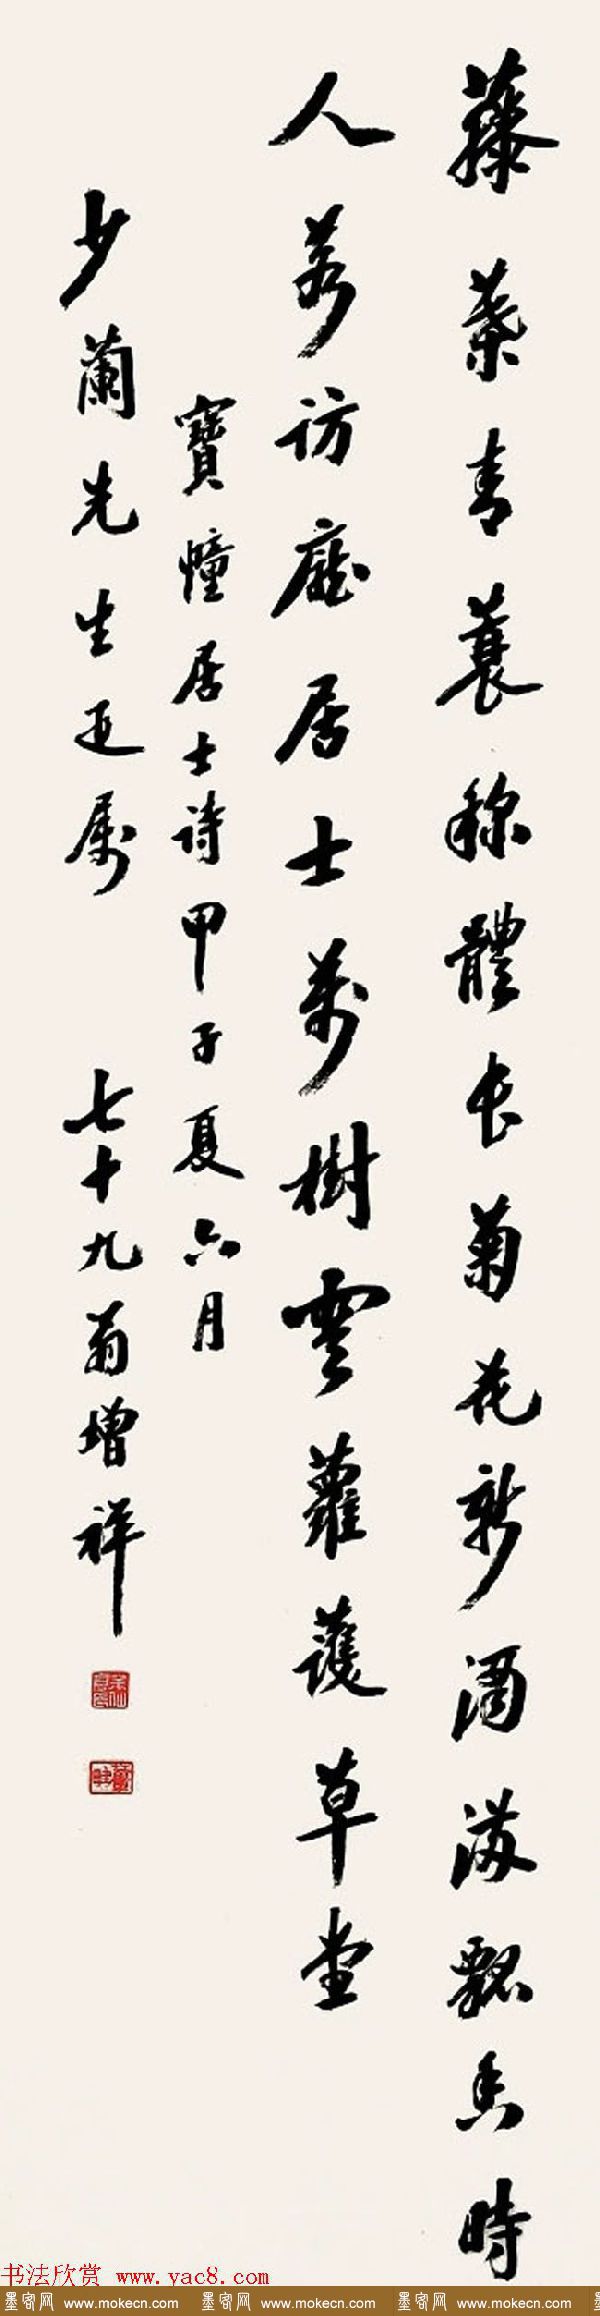 藤葉青蓑稱體長菊花新酒滿瓢香時
人若訪龐居士萬樹雲蘿護草堂
寶幢居士詩甲子夏六月
少蘭先生正屬 七十九翁增祥
书法欣赏 www.yac8.com
墨客网 www.mokecn.com 墨客网 www.mokecn.com 墨客网 www.mokecn.com 墨客网 www.mokecn.com